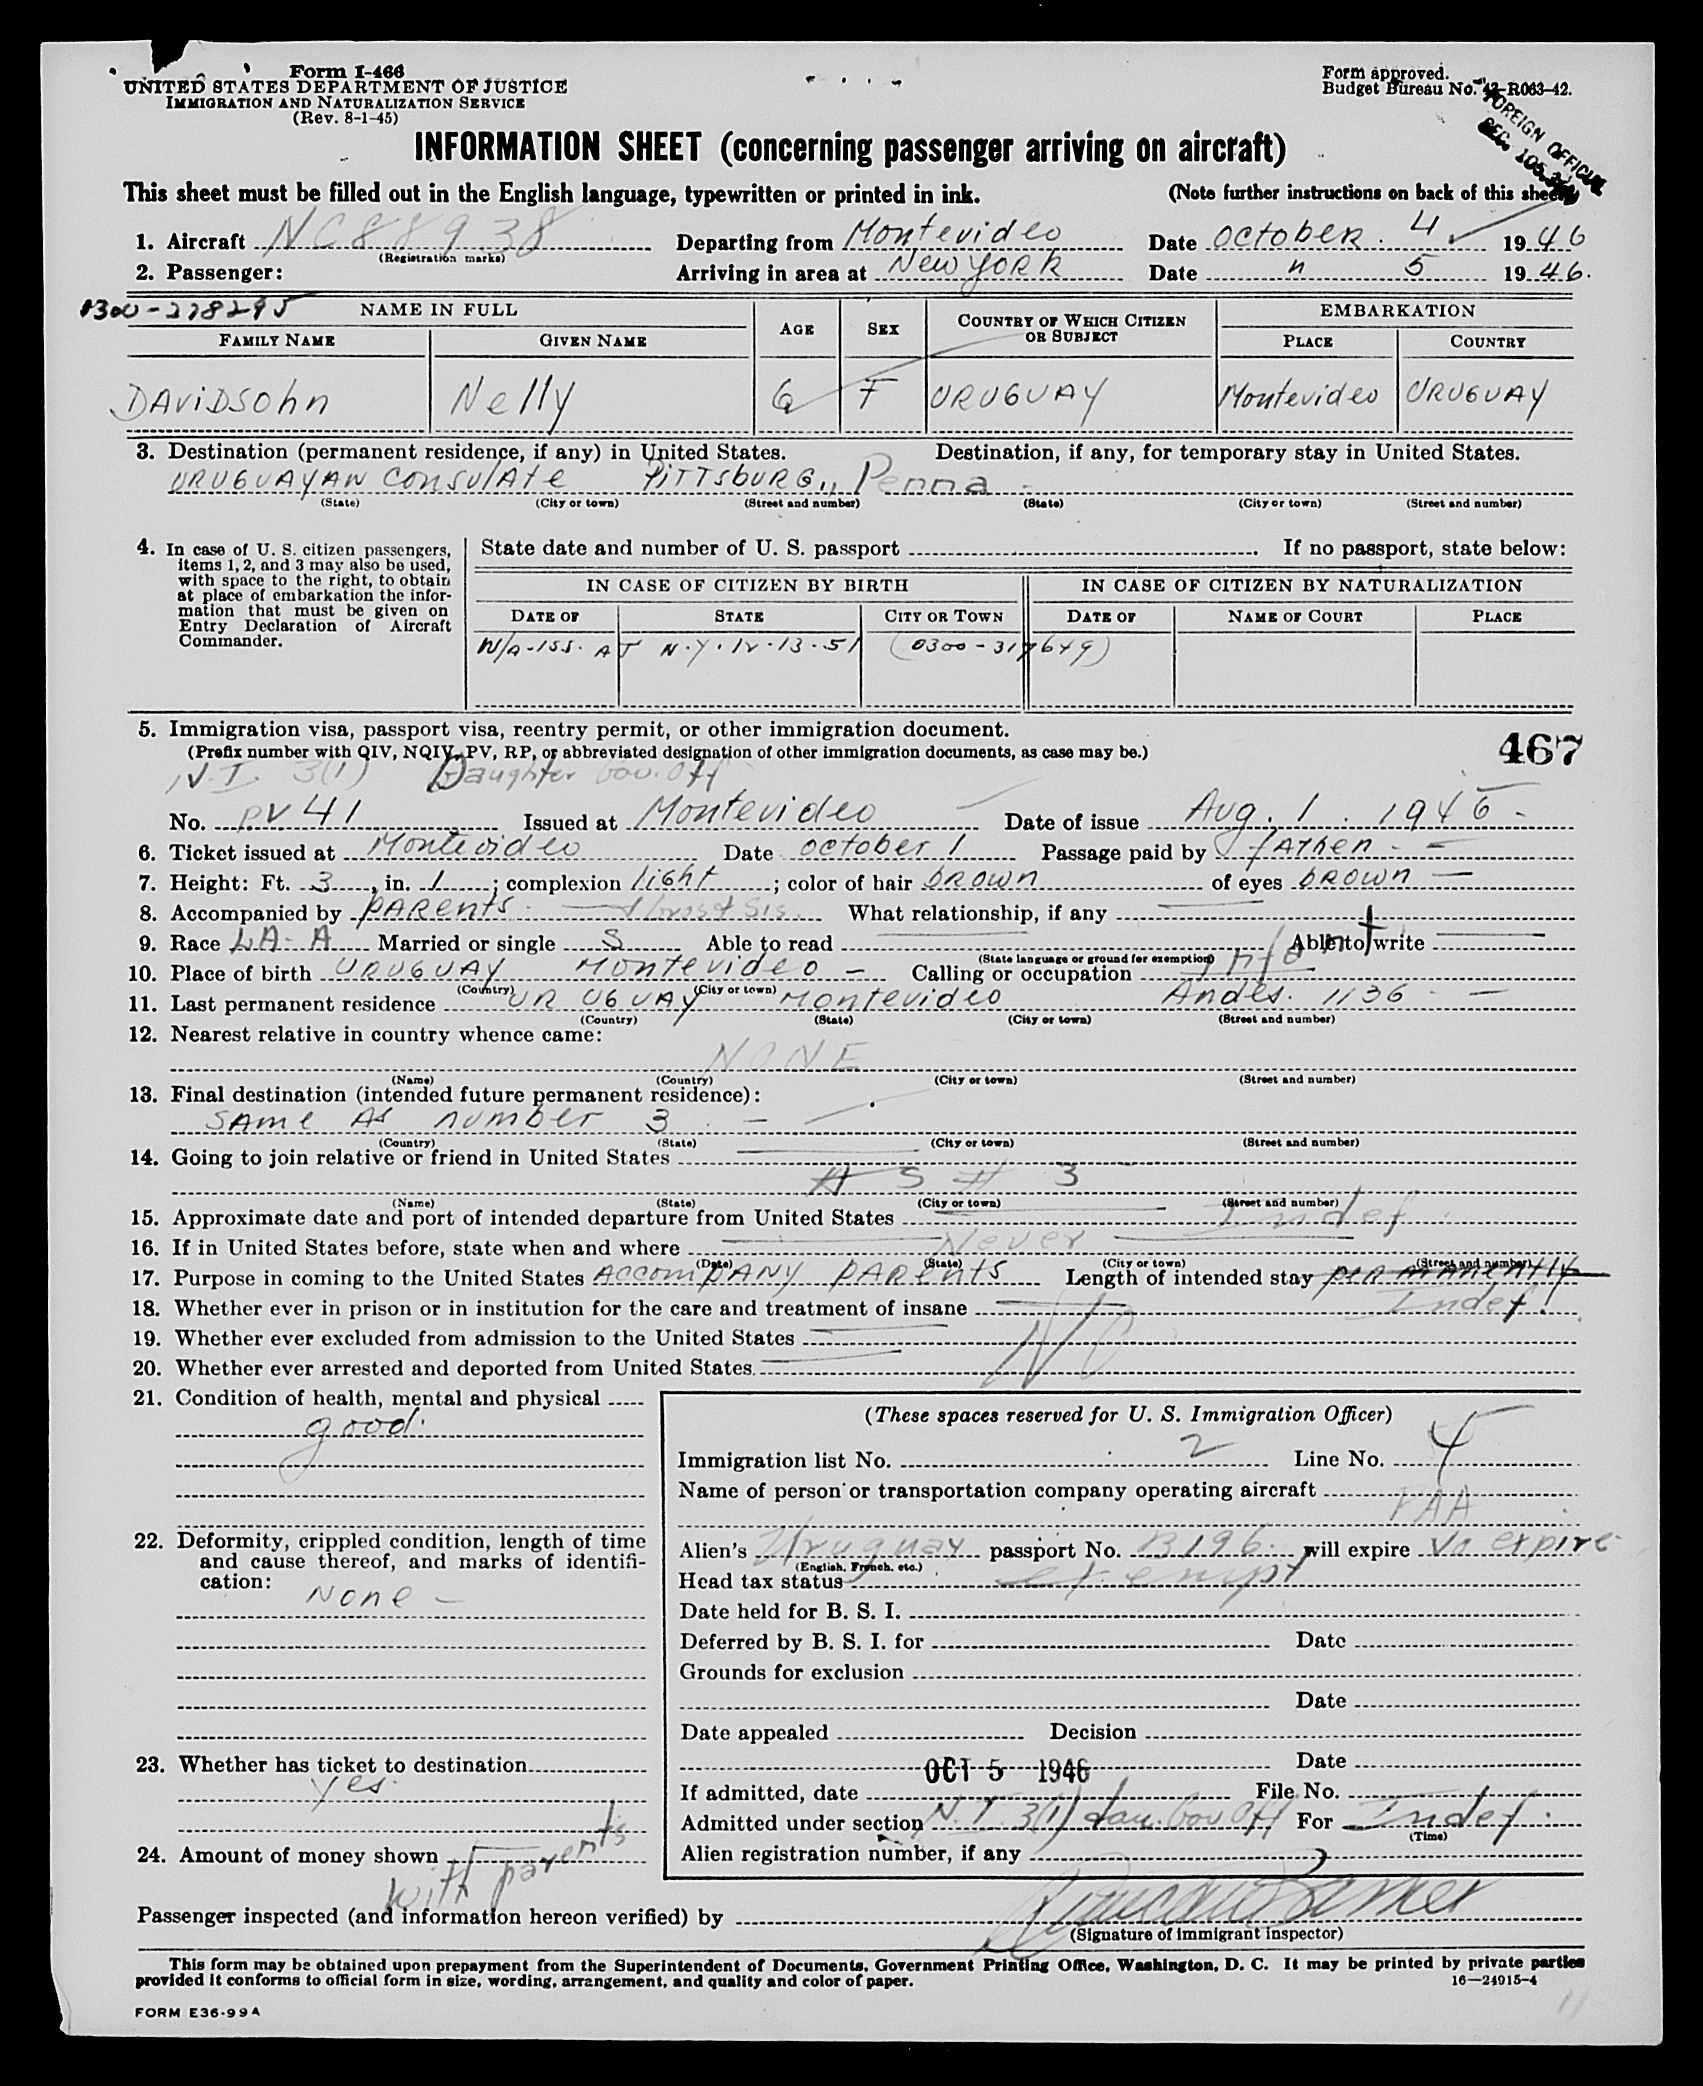 Form I-466
UNITED STATES DEPARTMENT OF JUSTICE
IMMIGRATION AND NATURALIZATION SERVICE
(Rev. 8-1-45)
Form approved.
Budget Bureau No. 43-R063-42.
FOREIGN OFFICIAL
SEC. 105.3
INFORMATION SHEET (concerning passenger arriving on aircraft)
This sheet must be filled out in the English language, typewritten or printed in ink. (Note further instructions on back of this sheet)
1. Aircraft NC88938 Departing from Montevideo Date OCTOBER 4 1946
(Registration marks)
2. Passenger: Arriving in area at New YORK Date " 5 1946.
0300-278295 NAME IN FULL AGE SEX COUNTRY OF WHICH CITIZEN OR SUBJECT EMBARKATION
FAMILY NAME GIVEN NAME PLACE COUNTRY
DAVIDSOHN Nelly 6 F URUGUAY Montevideo URUGUAY
3. Destination (permanent residence, if any) in United States. Destination, if any, for temporary stay in United States.
URUGUAYAN CONSULATE PITTSBURG, Penna
(State) (City or town) (Street and number) (State) (City or town) (Street and number)
4. In case of U. S. citizen passengers, items 1, 2, and 3 may also be used, with space to the right, to obtain at place of embarkation the information that must be given on Entry Declaration of Aircraft Commander.
State date and number of U. S. passport If no passport, state below:
IN CASE OF CITIZEN BY BIRTH IN CASE OF CITIZEN BY NATURALIZATION
DATE OF STATE CITY OR TOWN DATE OF NAME OF COURT PLACE
W/A-ISS. AT N.Y. 12-13-51 (0300-317649)
5. Immigration visa, passport visa, reentry permit, or other immigration document.
(Prefix number with QIV, NQIV, PV, RP, or abbreviated designation of other immigration documents, as case may be.) 467
N.I. 3(1) Daughter Gov. Off
No. PV 41 Issued at Montevideo Date of issue Aug. 1. 1946
6. Ticket issued at Montevideo Date October 1 Passage paid by fATHER
7. Height: Ft. 3, in. 1; complexion light; color of hair BROWN of eyes BROWN
8. Accompanied by PARENTS What relationship, if any
9. Race LA-A Married or single S Able to read Able to write
(State language or ground for exemption)
10. Place of birth URUGUAY Montevideo Calling or occupation Infant
(Country) (City or town)
11. Last permanent residence URUGUAY Montevideo Andes. 1136
(Country) (State) (City or town) (Street and number)
12. Nearest relative in country whence came:
NONE
(Name) (Country) (City or town) (Street and number)
13. Final destination (intended future permanent residence):
SAME AS number 3
(Country) (State) (City or town) (Street and number)
14. Going to join relative or friend in United States
AS # 3
(Name) (State) (City or town) (Street and number)
15. Approximate date and port of intended departure from United States Indef.
16. If in United States before, state when and where Never
(Date) (State) (City or town) (Street and number)
17. Purpose in coming to the United States ACCOMPANY PARENTS Length of intended stay permanently
Indef.
18. Whether ever in prison or in institution for the care and treatment of insane
19. Whether ever excluded from admission to the United States No
20. Whether ever arrested and deported from United States.
21. Condition of health, mental and physical
good.
22. Deformity, crippled condition, length of time and cause thereof, and marks of identification:
None
23. Whether has ticket to destination
yes.
24. Amount of money shown
with parents
(These spaces reserved for U. S. Immigration Officer)
Immigration list No. 2 Line No. 4
Name of person or transportation company operating aircraft
PAA
Alien's Uruguay passport No. B196. will expire No expire
(English, French, etc.)
Head tax status exempt
Date held for B. S. I.
Deferred by B. S. I. for Date
Grounds for exclusion
Date
Date appealed Decision
OCT 5 1946 Date
If admitted, date File No.
Admitted under section N.I. 3(1) dau. Gov Off For Indef.
(Time)
Alien registration number, if any
Passenger inspected (and information hereon verified) by
(Signature of immigrant inspector)
This form may be obtained upon prepayment from the Superintendent of Documents, Government Printing Office, Washington, D. C. It may be printed by private parties
provided it conforms to official form in size, wording, arrangement, and quality and color of paper. 16—24915-4
FORM E36-99A
11